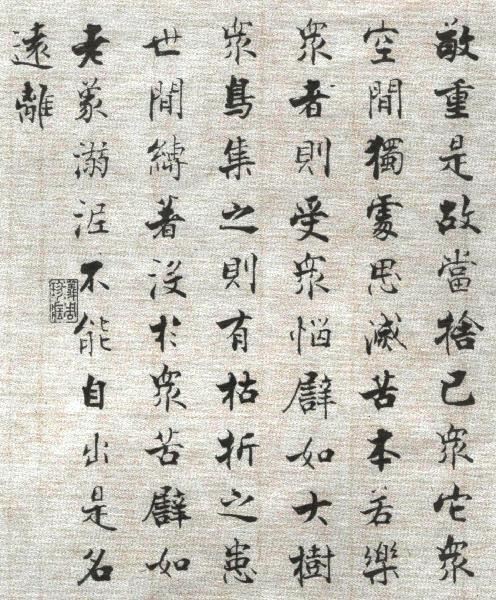 敬重是故當捨己衆它衆
空間獨處思滅苦本若樂
衆者則受衆惱譬如大樹
衆鳥集之則有枯折之患
世間縛著没於衆苦譬如
老象溺泥不能自出是名
遠離